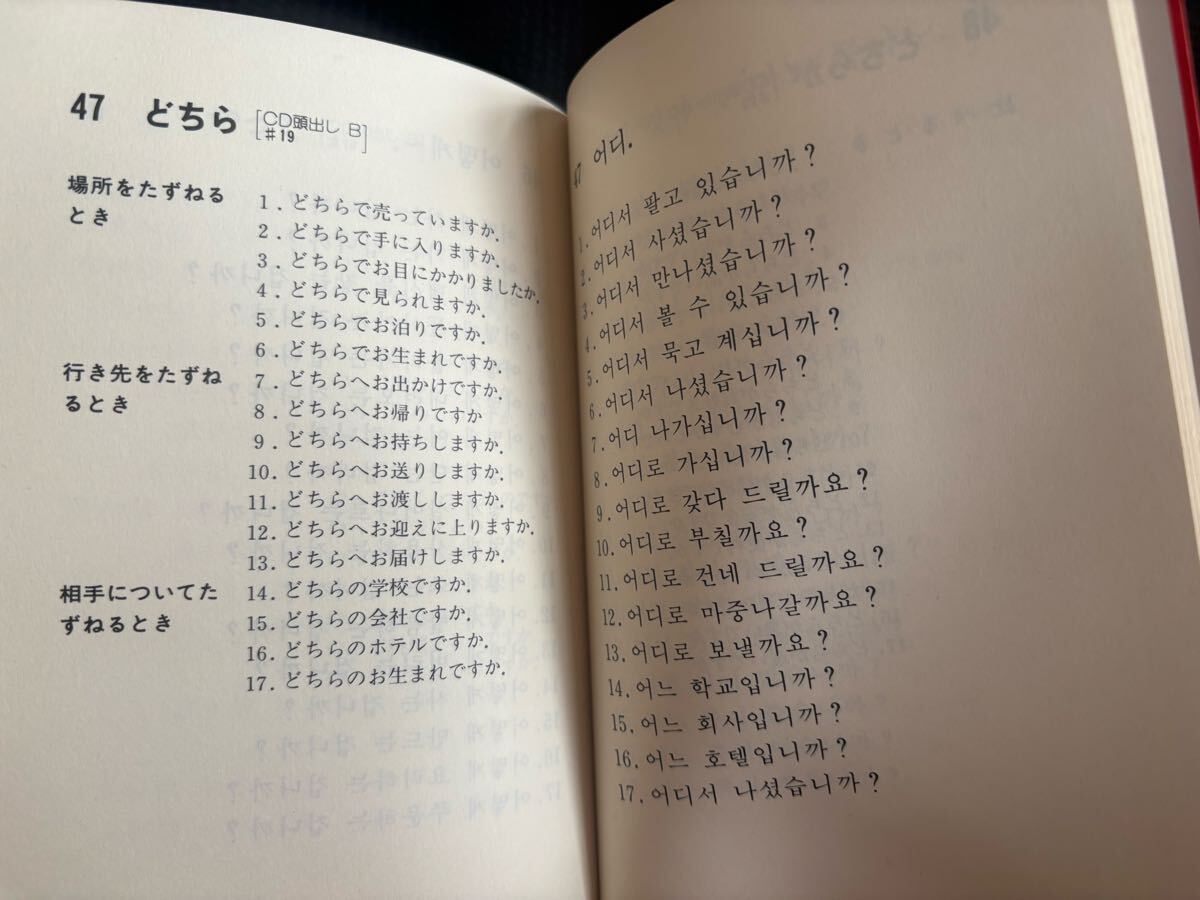 47 どちら [CD頭出し B #19]
場所をたずねる
とき
1. どちらで売っていますか.
2. どちらで手に入りますか.
3. どちらでお目にかかりましたか.
4. どちらで見られますか.
5. どちらでお泊りですか.
6. どちらでお生まれですか.
行き先をたずね
るとき
7. どちらへお出かけですか.
8. どちらへお帰りですか
9. どちらへお持ちしますか.
10. どちらへお送りしますか.
11. どちらへお渡ししますか.
12. どちらへお迎えに上りますか.
13. どちらへお届けしますか.
相手についてた
ずねるとき
14. どちらの学校ですか.
15. どちらの会社ですか.
16. どちらのホテルですか.
17. どちらのお生まれですか.
47 어디.
1. 어디서 팔고 있습니까?
2. 어디서 사셨습니까?
3. 어디서 만나셨습니까?
4. 어디서 볼 수 있습니까?
5. 어디서 묵고 계십니까?
6. 어디서 나셨습니까?
7. 어디 나가십니까?
8. 어디로 가십니까?
9. 어디로 갖다 드릴까요?
10. 어디로 부칠까요?
11. 어디로 건네 드릴까요?
12. 어디로 마중나갈까요?
13. 어디로 보낼까요?
14. 어느 학교입니까?
15. 어느 회사입니까?
16. 어느 호텔입니까?
17. 어디서 나셨습니까?